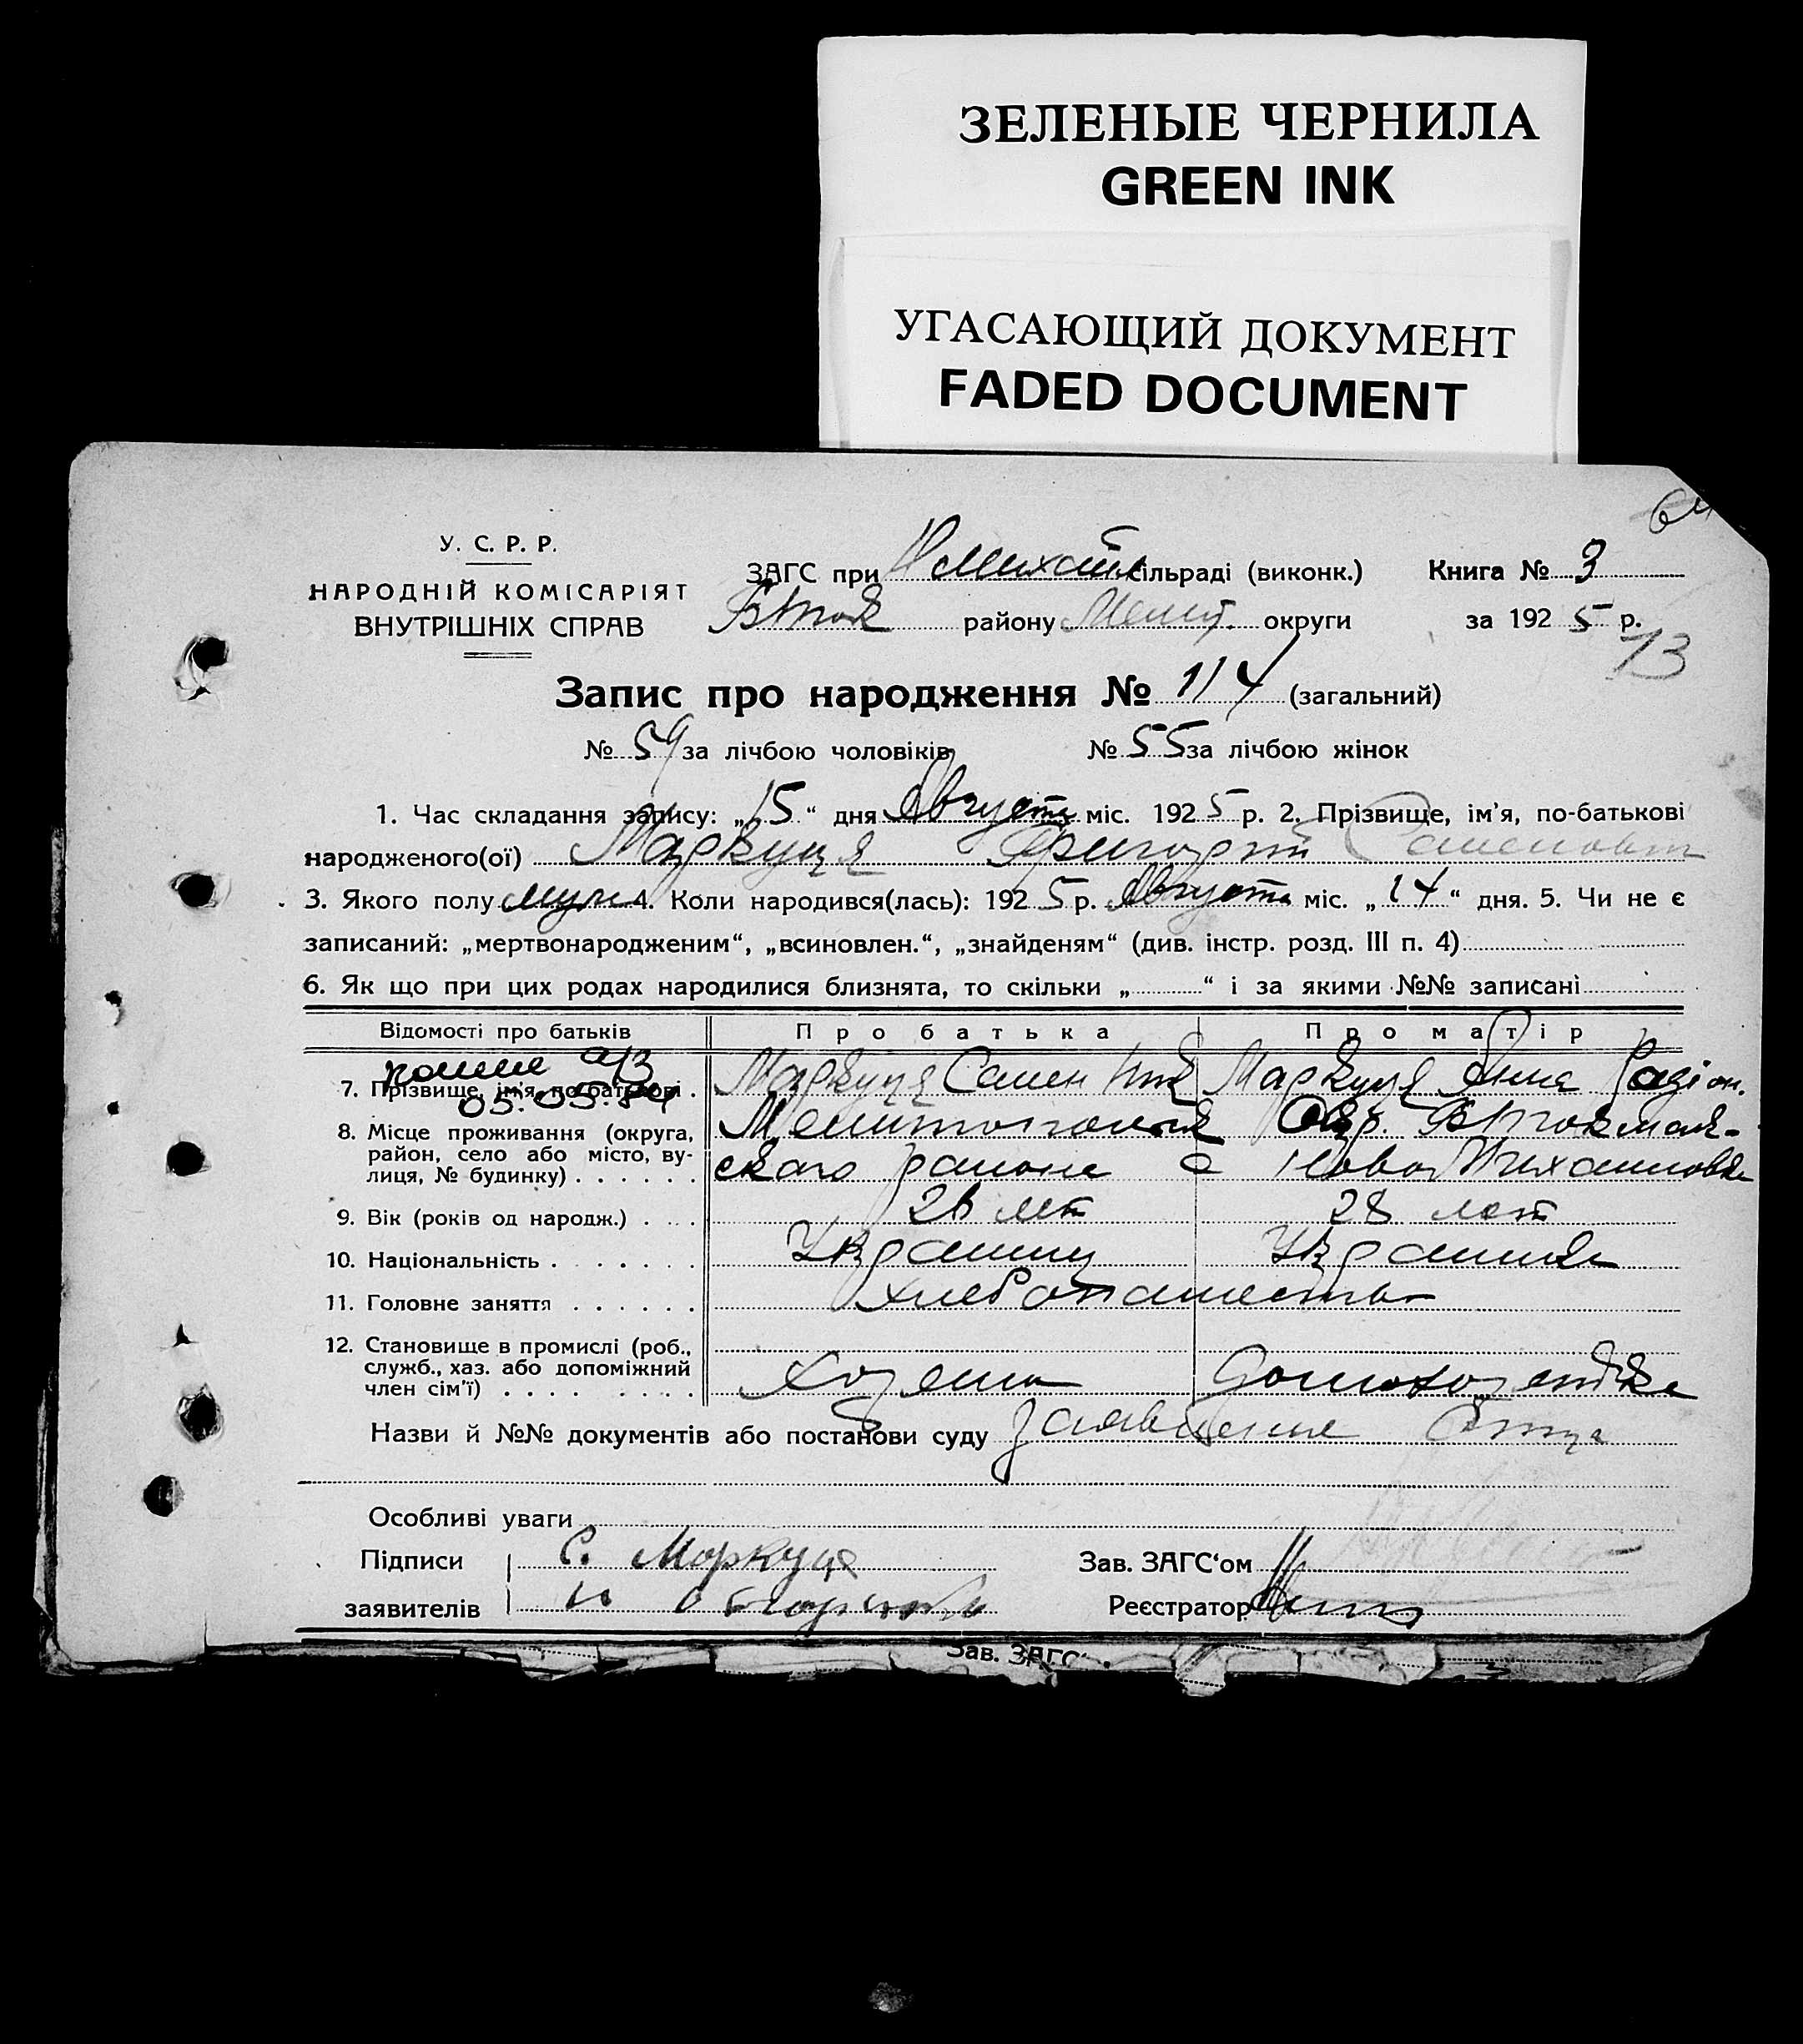 ЗЕЛЕНЫЕ ЧЕРНИЛА
GREEN INK
УГАСАЮЩИЙ ДОКУМЕНТ
FADED DOCUMENT
У. С. Р. Р.
НАРОДНІЙ КОМІСАРІЯТ
ВНУТРІШНІХ СПРАВ
ЗАГС при Н Михайл сільраді (виконк.) Книга № 3
БТток району Мелит. округи за 1925 р.
13
Запис про народження № 114 (загальний)
№ 59 за лічбою чоловіків № 55 за лічбою жінок
1. Час складання запису: „15“ дня Августа міс. 1925 р. 2. Прізвище, ім'я, по-батькові
народженого(ої) Маркуця Григорій Семенович
3. Якого полу муж 4. Коли народився(лась): 1925 р. Августа міс. „14“ дня. 5. Чи не є
записаний: „мертвонародженим“, „всиновлен.“, „знайденям“ (див. інстр. розд. III п. 4)
6. Як що при цих родах народилися близнята, то скільки „ “ і за якими №№ записані
Відомості про батьків Про батька Про матір
05.05.
7. Прізвище, ім'я, по-батькові . Маркуця Семен Маркуця Анна Радіон.
8. Місце проживання (округа, район, село або місто, вулиця, № будинку) . . . . . . Мелитопольск Окр. БТтокмак-
ского района с Ново Михайловка
9. Вік (років од народж.) . . . . 28 лет
10. Національність . . . . . . . Украинец Украинка
11. Головне заняття . . . . . . Хлебопашество
12. Становище в промислі (роб., служб., хаз. або допоміжний член сім'ї) . . . . . . . . Хозяин Домохозяйка
Назви й №№ документів або постанови суду Заявление Отца
Особливі уваги
Підписи С. Маркуця Зав. ЗАГС'ом
заявителів Реєстратор
Зав. ЗАГС'